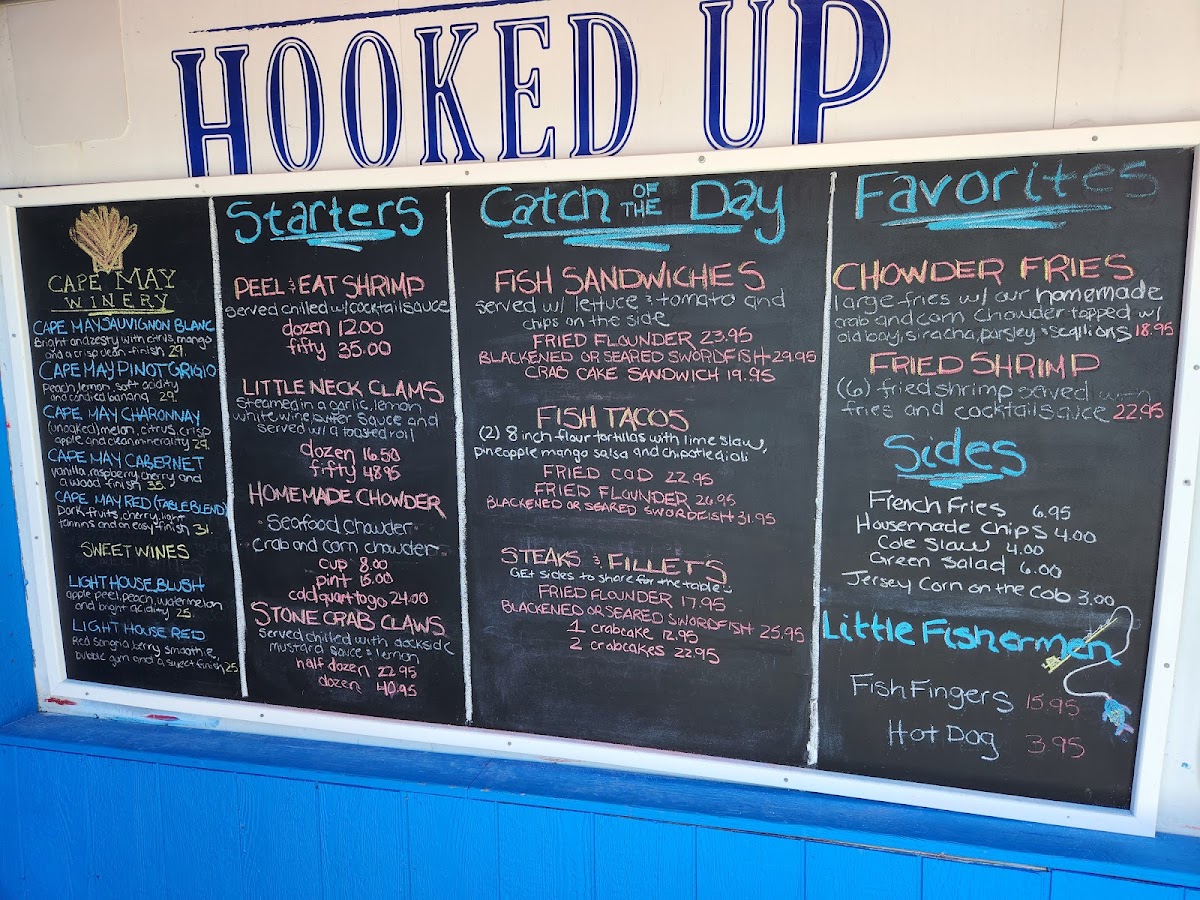 HOOKED UP
CAPE MAY
WINERY
CAPE MAY SAUVIGNON BLANC
Bright and zesty with citrus, mango
and a crisp clean finish 29.
CAPE MAY PINOT GRIGIO
Peach, lemon, soft acidity
and candied banana 29.
CAPE MAY CHARONNAY
(unoaked) melon, citrus, crisp
apple and clean minerality 29.
CAPE MAY CABERNET
vanilla, raspberry, cherry and
a wood finish 35.
CAPE MAY RED (TABLE BLEND)
Dark fruits, cherry, light
tannins and an easy finish 31.
SWEET WINES
LIGHT HOUSE BLUSH
apple peel, peach, watermelon
and bright acidity 25
LIGHT HOUSE RED
Red sangria, berry smoothie,
bubble gum and a sweet finish 25
Starters
PEEL & EAT SHRIMP
served chilled w/cocktail sauce
dozen 12.00
fifty 35.00
LITTLE NECK CLAMS
Steamed in a garlic, lemon
white wine, butter sauce and
served w/ a toasted roll
dozen 16.50
fifty 48.95
HOMEMADE CHOWDER
Seafood chowder
Crab and corn chowder
cup 8.00
pint 15.00
cold quart to go 24.00
STONE CRAB CLAWS
served chilled with dockside
mustard sauce & lemon
half dozen 22.95
dozen 40.95
Catch OF THE Day
FISH SANDWICHES
served w/ lettuce & tomato and
chips on the side
FRIED FLOUNDER 23.95
BLACKENED OR SEARED SWORDFISH 29.95
CRAB CAKE SANDWICH 19.95
FISH TACOS
(2) 8 inch flour tortillas with lime slaw,
pineapple mango salsa and chipotle aioli
FRIED COD 22.95
FRIED FLOUNDER 26.95
BLACKENED OR SEARED SWORDFISH 31.95
STEAKS & FILLETS
GEt sides to share for the table
FRIED FLOUNDER 17.95
BLACKENED OR SEARED SWORDFISH 25.95
1 crabcake 12.95
2 crabcakes 22.95
Favorites
CHOWDER FRIES
large fries w/ our homemade
crab and corn chowder topped w/
old bay, siracha, parsley & scallions 18.95
FRIED SHRIMP
(6) fried shrimp served with
fries and cocktail sauce 22.95
Sides
French Fries 6.95
Housemade Chips 4.00
Cole Slaw 4.00
Green Salad 6.00
Jersey Corn on the Cob 3.00
Little Fishermen
Fish Fingers 15.95
Hot Dog 3.95